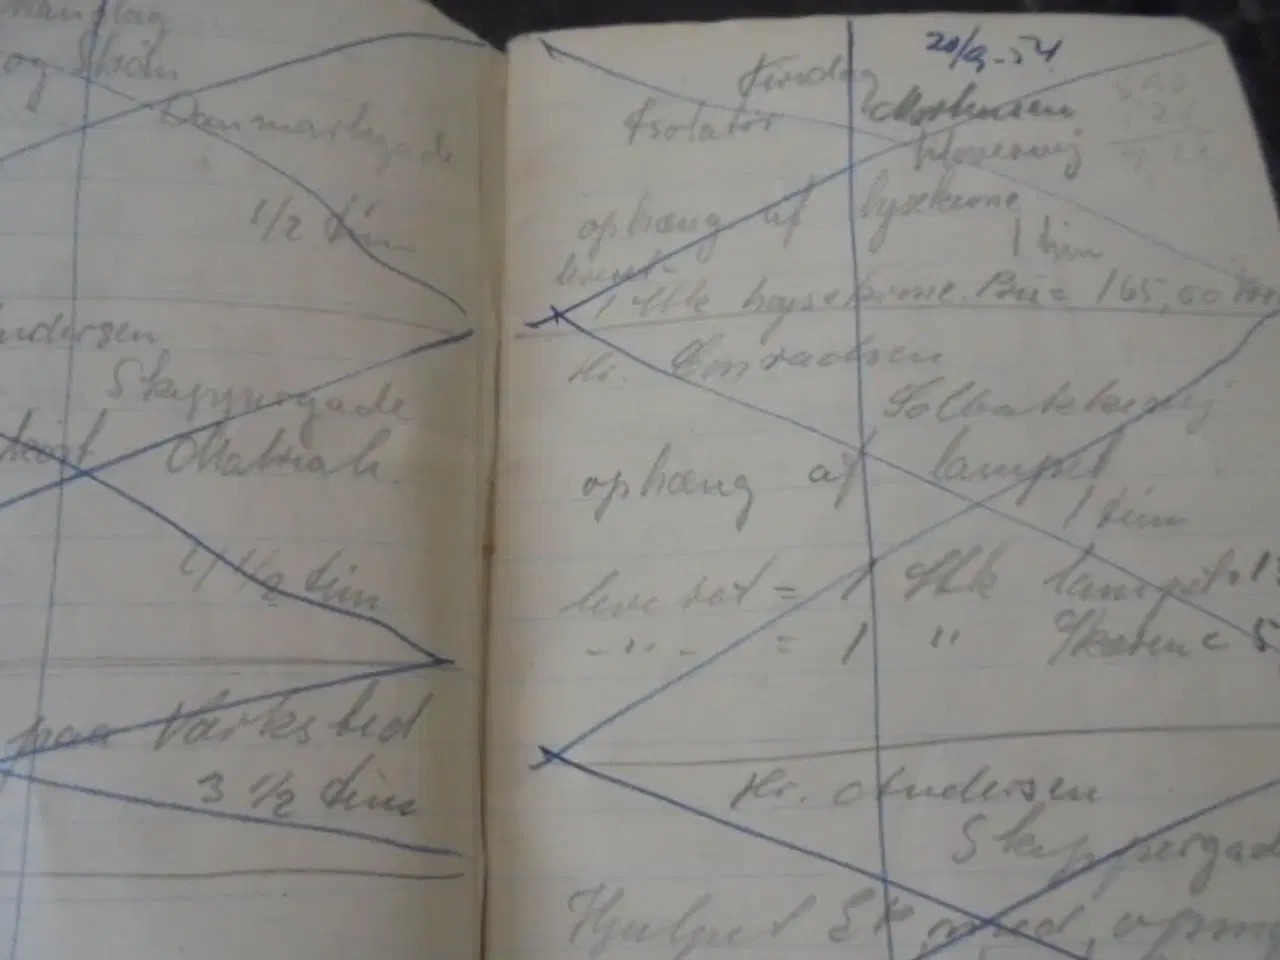 og Strøm
Danmarksgade
1/2 tim
Andersen
Skippergade
hent Matriale
4 1/2 tim
paa Værksted
3 1/2 tim
20/9-54
Tirsdag
Isolatør Mortensen
Kløvervej
ophæng af lysekrone
1 tim
leveret
1 Stk lysekrone. Pris = 165,00 Kr
Hr. Konradsen
Solbakkevej
ophæng af lampet
1 tim
leverat = 1 Stk lampet
- " - = 1 " Skærm = 5
Hr. Andersen
Skippergade
Hjulpet med